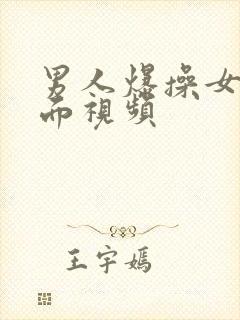 男人爆操女
而視頻
王宇嫣